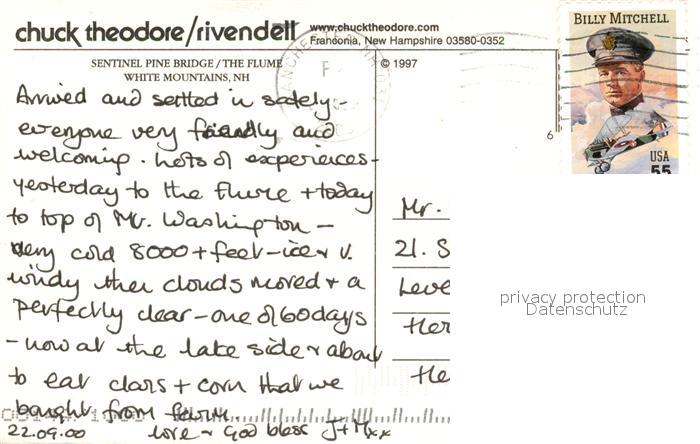 chuck theodore/rivendell www.chucktheodore.com
Franconia, New Hampshire 03580-0352
SENTINEL PINE BRIDGE / THE FLUME
WHITE MOUNTAINS, NH
© 1997
BILLY MITCHELL
USA
55
6
Arrived and settled in safely -
everyone very friendly and
welcoming. Lots of experiences -
yesterday to the flume + today
to top of Mt. Washington -
very cold 8000 + feet - ice + v.
windy then clouds moved + a
perfectly clear - one of 60 days
- now at the lake side + about
to eat clams + corn that we
bought from farm.
22.09.00 love + God bless J+M xx
Mr.
21. S
Leve
Her
He
privacy protection
Datenschutz